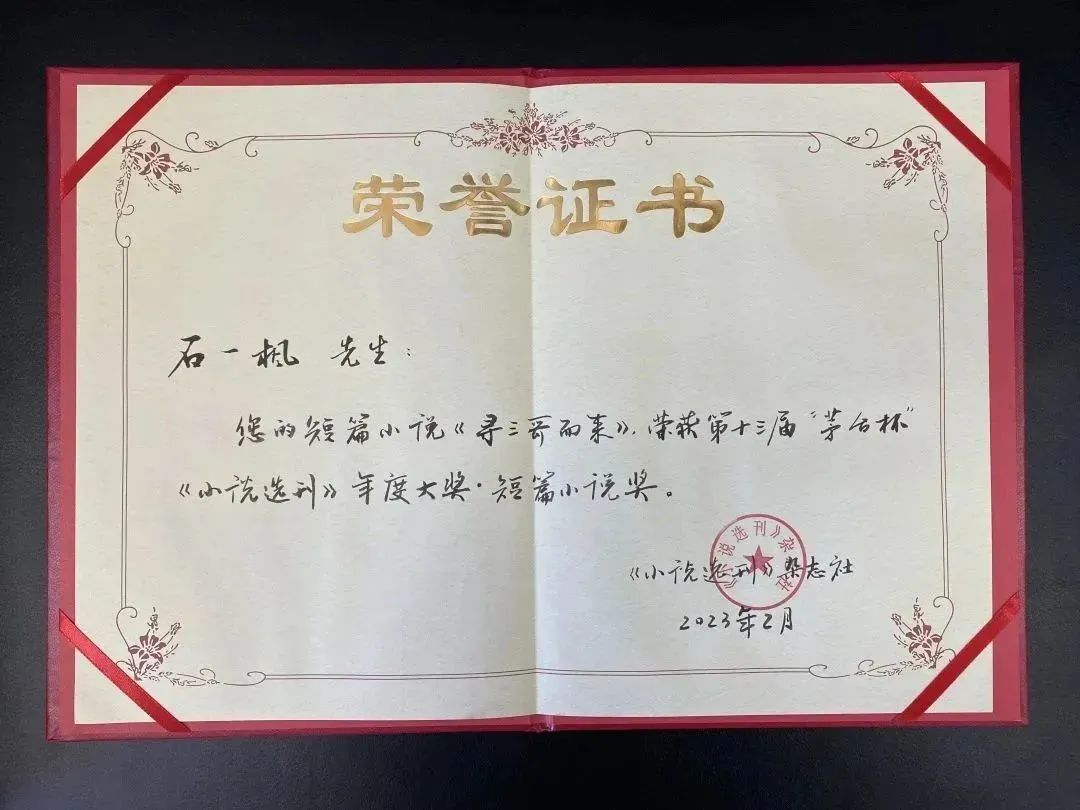 荣誉证书
石一枫 先生：
您的短篇小说《寻三哥而来》，荣获第十三届“茅台杯”
《小说选刊》年度大奖·短篇小说奖。
《小说选刊》杂志社
《小说选刊》杂志社
2023年2月